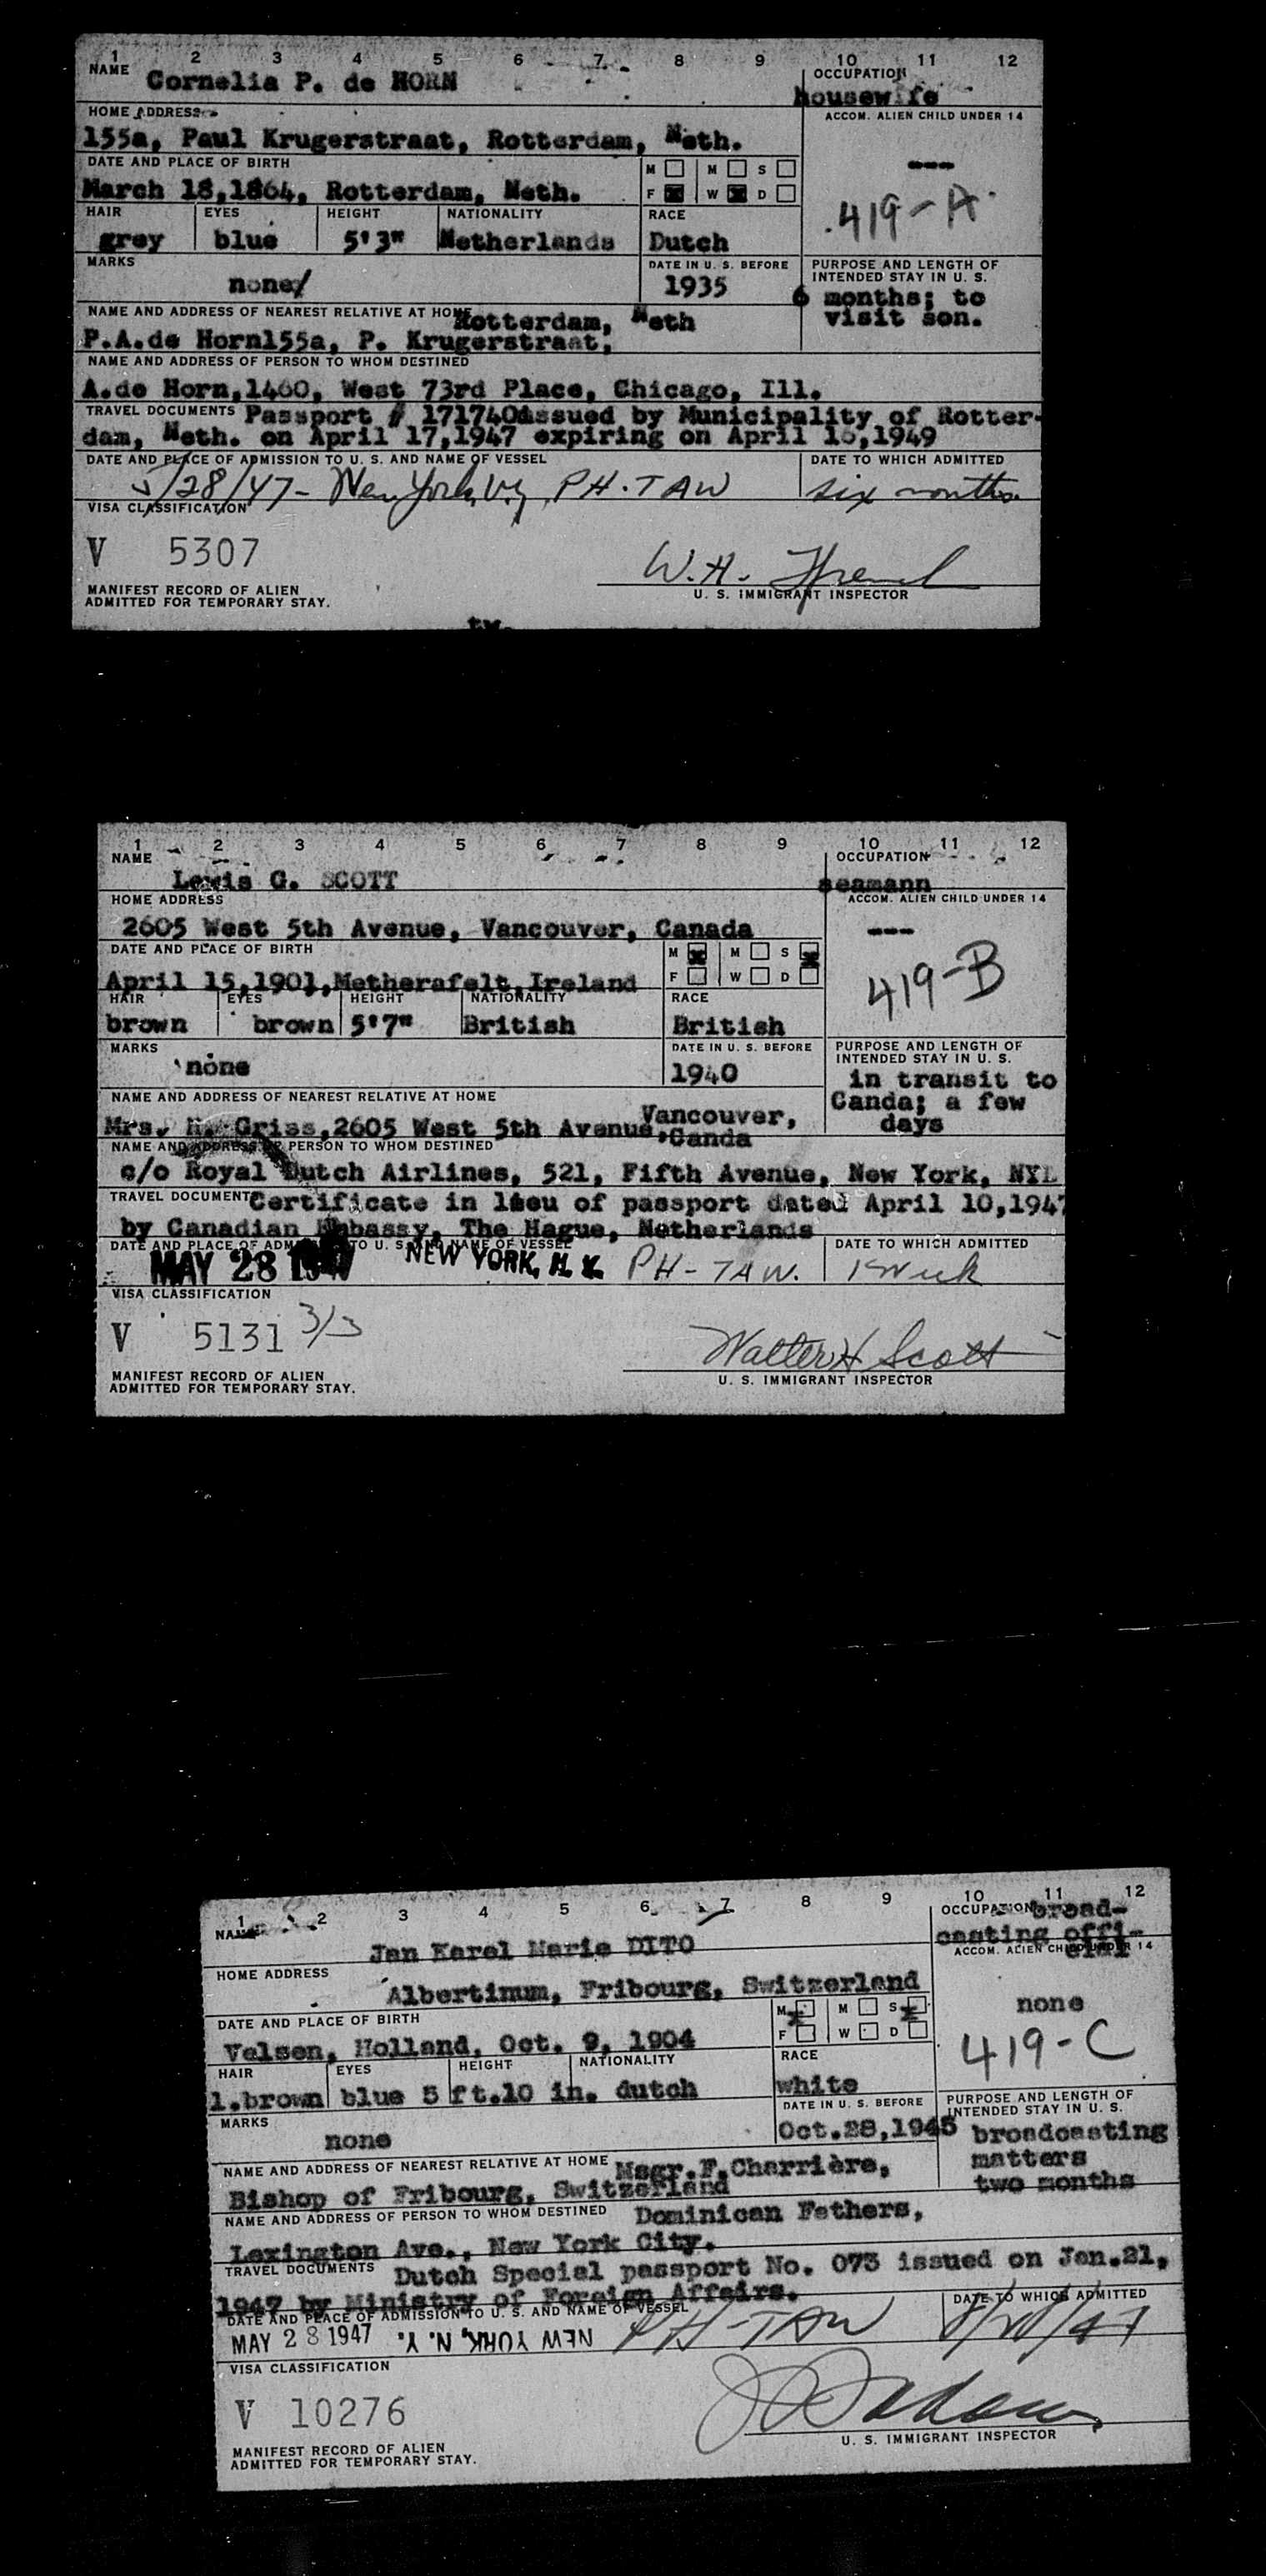 1 2 3 4 5 6 7 8 9 10 11 12
NAME Cornelia P. de HORN
OCCUPATION
housewife
HOME ADDRESS
ACCOM. ALIEN CHILD UNDER 14
155a, Paul Krugerstraat, Rotterdam, Neth.
---
DATE AND PLACE OF BIRTH
M M S
March 18,1864, Rotterdam, Neth.
F X W X D
419-A
HAIR EYES HEIGHT NATIONALITY RACE
grey blue 5'3" Netherlands Dutch
MARKS DATE IN U. S. BEFORE PURPOSE AND LENGTH OF
INTENDED STAY IN U. S.
none/ 1935 6 months; to
visit son.
NAME AND ADDRESS OF NEAREST RELATIVE AT HOME Rotterdam, Neth
P.A.de Horn155a, P. Krugerstraat,
NAME AND ADDRESS OF PERSON TO WHOM DESTINED
A.de Horn,1460, West 73rd Place, Chicago, Ill.
TRAVEL DOCUMENTS Passport # 171740issued by Municipality of Rotter-
dam, Neth. on April 17,1947 expiring on April 16,1949
DATE AND PLACE OF ADMISSION TO U. S. AND NAME OF VESSEL DATE TO WHICH ADMITTED
5/28/47- New York, N.Y. PH-TAW six months
VISA CLASSIFICATION
V 5307
W.H.
MANIFEST RECORD OF ALIEN
ADMITTED FOR TEMPORARY STAY.
U. S. IMMIGRANT INSPECTOR
1 2 3 4 5 6 7 8 9 10 11 12
NAME OCCUPATION
Lewis G. SCOTT seamann
HOME ADDRESS ACCOM. ALIEN CHILD UNDER 14
2605 West 5th Avenue, Vancouver, Canada ---
DATE AND PLACE OF BIRTH M X M S X
April 15,1901,Metherafelt,Ireland F W D
419-B
HAIR EYES HEIGHT NATIONALITY RACE
brown brown 5'7" British British
MARKS DATE IN U. S. BEFORE PURPOSE AND LENGTH OF
INTENDED STAY IN U. S.
none 1940 in transit to
Canda; a few
days
NAME AND ADDRESS OF NEAREST RELATIVE AT HOME
Mrs. Griss,2605 West 5th Avenue,Vancouver,
Canda
NAME AND ADDRESS OF PERSON TO WHOM DESTINED
c/o Royal Dutch Airlines, 521, Fifth Avenue, New York, NYL
TRAVEL DOCUMENT Certificate in lieu of passport dated April 10,1947
by Canadian Embassy, The Hague, Netherlands
DATE AND PLACE OF ADMISSION TO U. S. AND NAME OF VESSEL DATE TO WHICH ADMITTED
MAY 28 1947 NEW YORK, N. Y. PH-TAW. 1 Week
VISA CLASSIFICATION
V 5131 3/3
Walter H Scott
MANIFEST RECORD OF ALIEN
ADMITTED FOR TEMPORARY STAY.
U. S. IMMIGRANT INSPECTOR
1 2 3 4 5 6 7 8 9 10 11 12
NAME OCCUPATION broad-
casting offi-
cial
Jan Karel Marie DITO
HOME ADDRESS ACCOM. ALIEN CHILD UNDER 14
Albertinum, Fribourg, Switzerland none
DATE AND PLACE OF BIRTH M X M S X
Velsen, Holland, Oct. 9, 1904 F W D
419-C
HAIR EYES HEIGHT NATIONALITY RACE
l.brown blue 5 ft.10 in. dutch white
MARKS DATE IN U. S. BEFORE PURPOSE AND LENGTH OF
INTENDED STAY IN U. S.
none Oct.28,1945 broadcasting
matters
two months
NAME AND ADDRESS OF NEAREST RELATIVE AT HOME Msgr.F.Charrière,
Bishop of Fribourg, Switzerland
NAME AND ADDRESS OF PERSON TO WHOM DESTINED Dominican Fathers,
Lexington Ave., New York City.
TRAVEL DOCUMENTS Dutch Special passport No. 073 issued on Jan.21,
1947 by Ministry of Foreign Affairs.
DATE AND PLACE OF ADMISSION TO U. S. AND NAME OF VESSEL DATE TO WHICH ADMITTED
MAY 28 1947 NEW YORK, N. Y. PH-TAW 8/28/47
VISA CLASSIFICATION
V 10276
MANIFEST RECORD OF ALIEN
ADMITTED FOR TEMPORARY STAY.
U. S. IMMIGRANT INSPECTOR